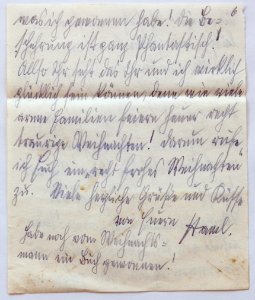 was ich gewonnen habe! Die Be-
scherung ist ganz phantastisch!
Also Ihr seht das Ihr und ich wirklich
glücklich sein können, denn wie viele
arme Familien feiern heuer recht
traurige Weihnachten! Darum rufe
ich Euch ein recht frohes Weihnachten
zu. Viele herzliche Grüße und Küsse
von Euern
Habe noch vom Weihnachts-
mann ein Buch gewonnen!